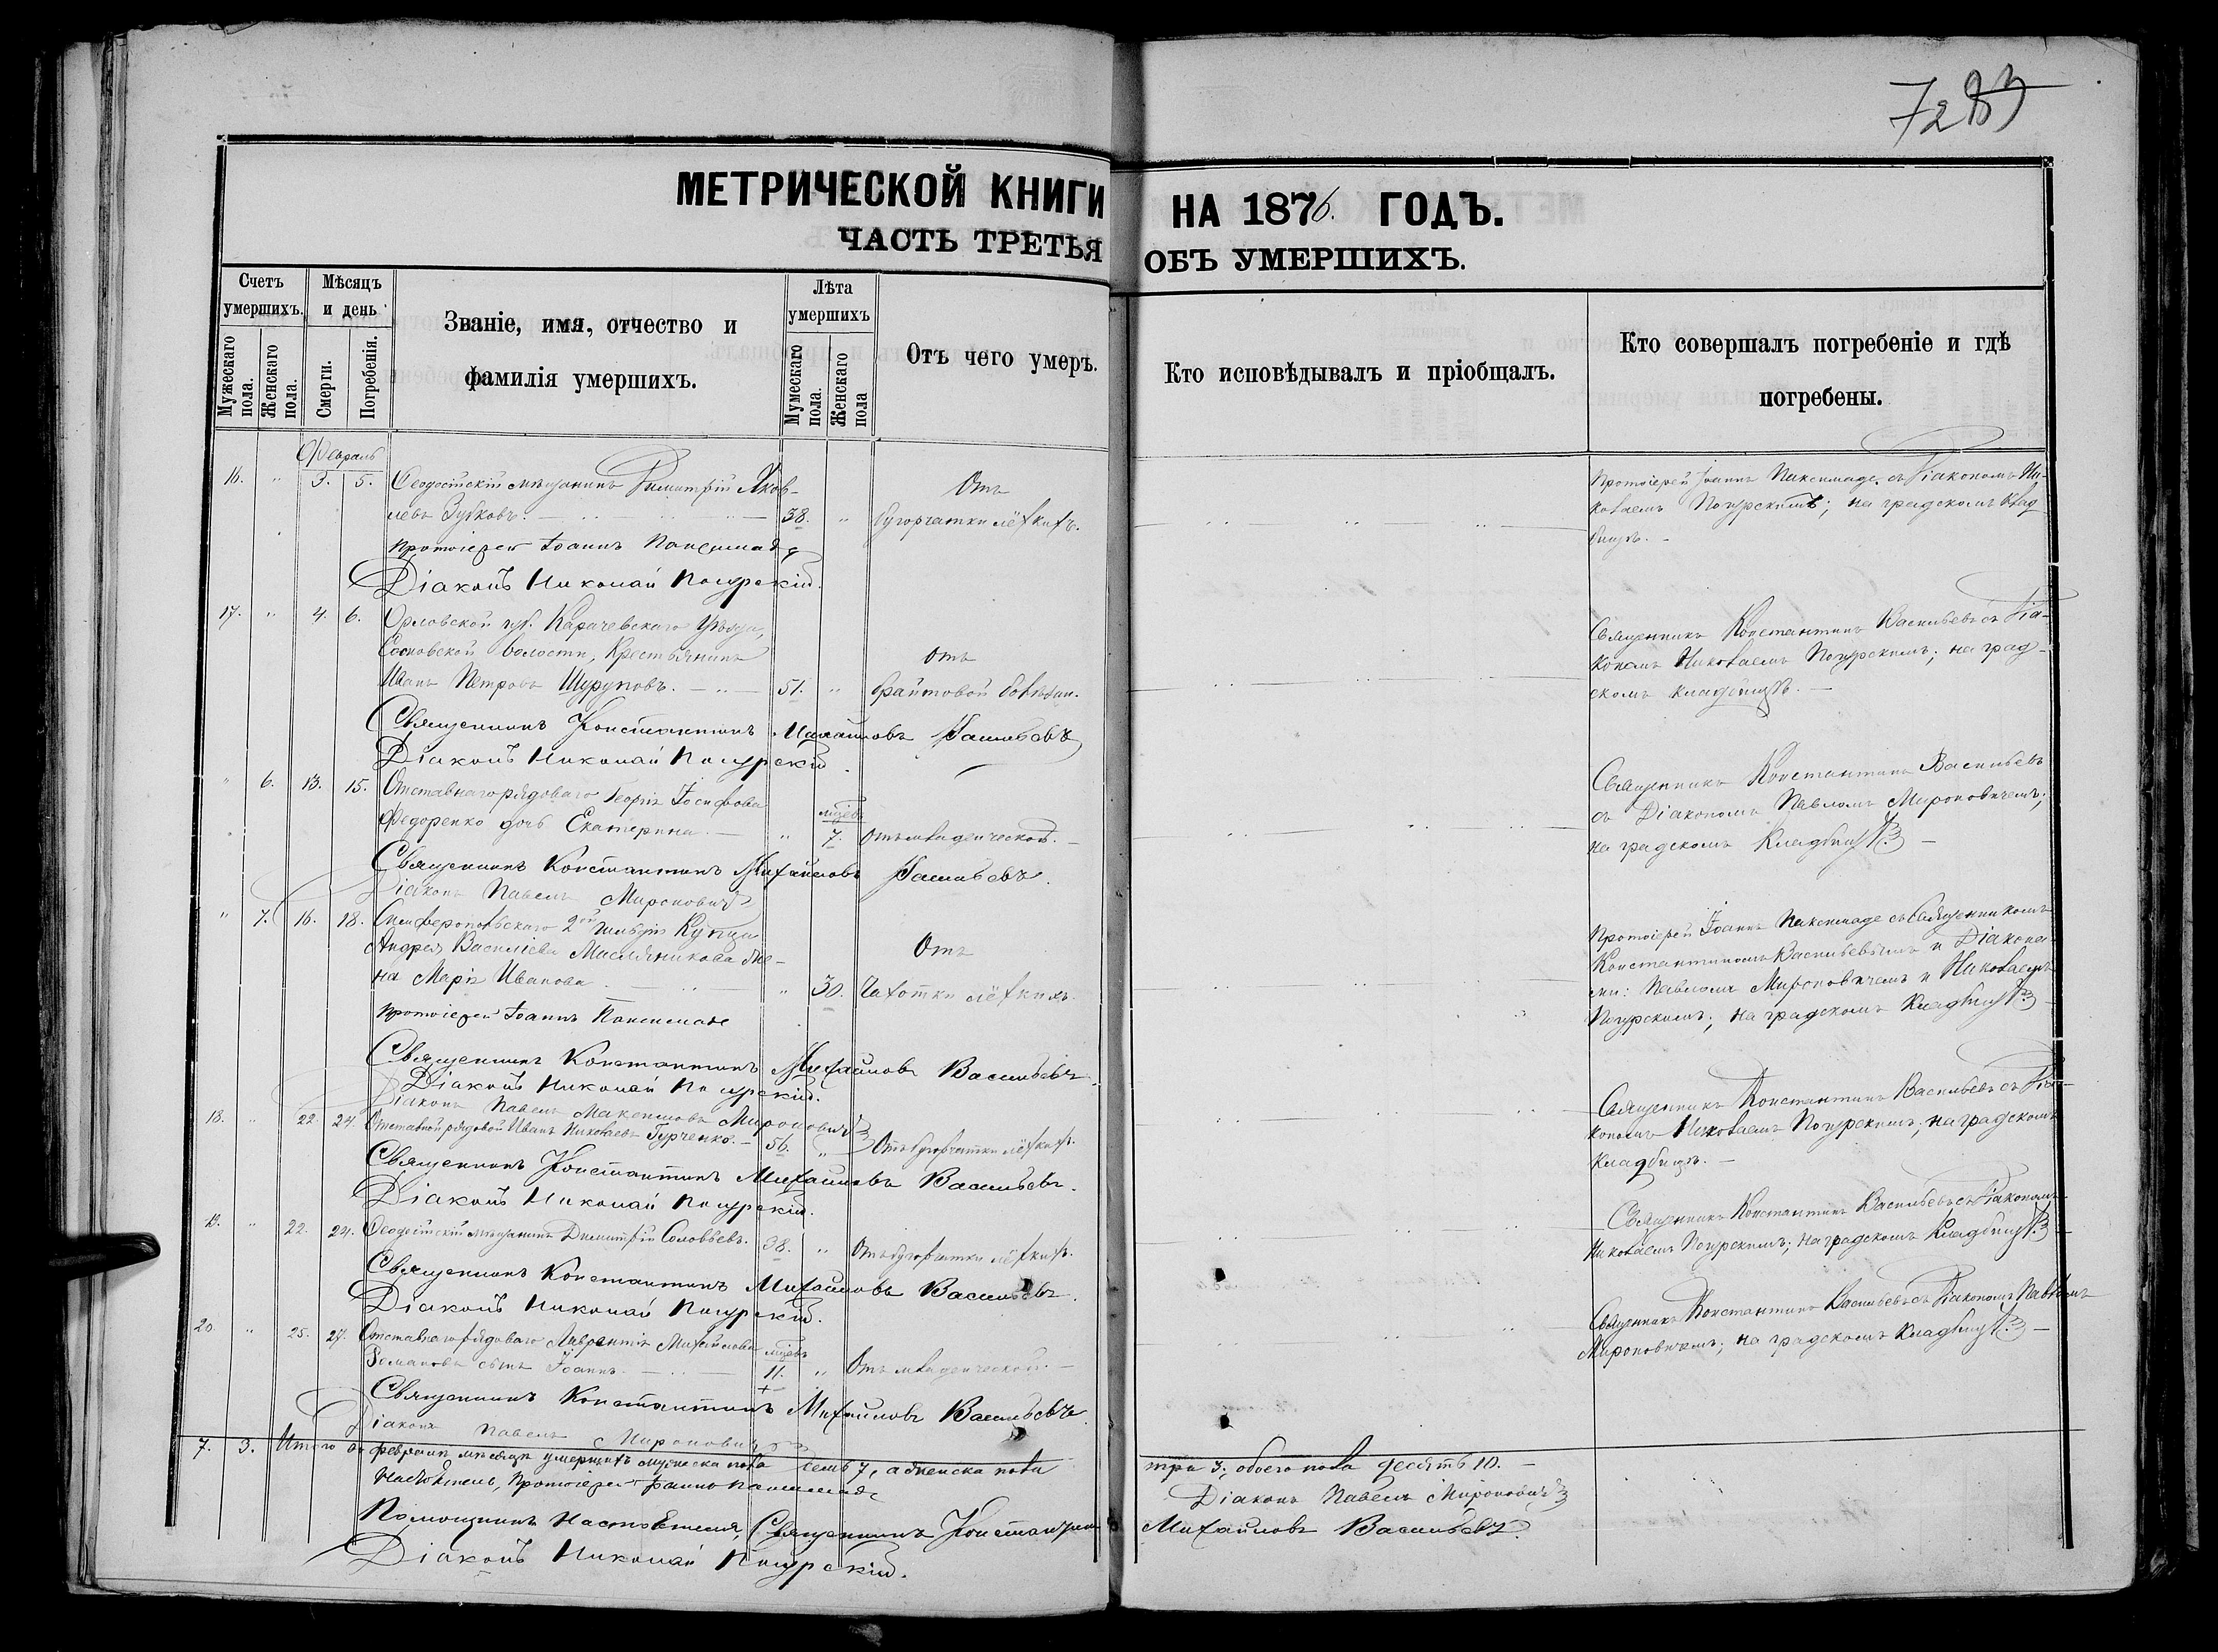 7283
МЕТРИЧЕСКОЙ КНИГИ НА 1876. ГОДЪ.
ЧАСТЬ ТРЕТЬЯ ОБЪ УМЕРШИХЪ.
Счетъ умершихъ.
Мужескаго пола.
Женскаго пола.
Мѣсяцъ и день
Смерти.
Погребенія.
Званіе, имя, отчество и
фамилія умершихъ.
Лѣта умершихъ
Мумескаго пола.
Женскаго пола
Отъ чего умеръ.
Кто исповѣдывалъ и пріобщалъ.
Кто совершалъ погребеніе и гдѣ
погребены.
Февраль
16. " 3. 5. Ѳеодосійскій мѣщанинъ Димитрій Яков-
левъ Зубковъ. 38. " Отъ бугорчатки лёгкихъ.
Протоіерей Іоаннъ Паксимаде
Діаконъ Николай Погурскій.
Протоіерей Іоаннъ Паксимаде съ Діакономъ Ни-
колаемъ Погурскимъ; на градскомъ клад-
бищѣ.
17. " 4. 6. Орловской губ. Карачевскаго Уѣзда,
Сосновской волости, Крестьянинъ
Иванъ Петровъ Шуруповъ. 51. " Отъ брайтовой болѣзни.
Священникъ Константинъ Михайловъ Васильевъ
Діаконъ Николай Погурскій.
Священникъ Константинъ Васильевъ съ Діа-
кономъ Николаемъ Погурскимъ; на град-
скомъ кладбищѣ.
" 6. 13. 15. Отставнаго рядоваго Георгія Іосифова
Федоренко дочь Екатерина. " мцевъ 7. Отъ младенческой.
Священникъ Константинъ Михайловъ Васильевъ.
Діаконъ Павелъ Мироновичъ
Священникъ Константинъ Васильевъ
съ Діакономъ Павломъ Мироновичемъ;
на градскомъ Кладбищѣ.
" 7. 16. 18. Симферопольскаго 2ой гильдіи Купца
Андрея Василіева Масляникова же-
на Марія Иванова. " 30. Отъ Чахотки лёгкихъ.
Протоіерей Іоаннъ Паксимаде
Священникъ Константинъ Михайловъ Васильевъ.
Діаконъ Николай Погурскій.
Діаконъ Павелъ Максимовъ Мироновичъ
Протоіерей Іоаннъ Паксимаде съ Священникомъ
Константиномъ Васильевымъ и Діакона-
ми: Павломъ Мироновичемъ и Николаемъ
Погурскимъ; на градскомъ Кладбищѣ.
18. " 22. 24. Отставной рядовой Иванъ Николаевъ Гурченко. 56. " Отъ бугорчатки лёгкихъ.
Священникъ Константинъ Михайловъ Васильевъ.
Діаконъ Николай Погурскій.
Священникъ Константинъ Васильевъ съ Діа-
кономъ Николаемъ Погурскимъ; на градскомъ
кладбищѣ.
19. " 22. 24. Ѳеодосійскій мѣщанинъ Димитрій Соловьевъ. 38. " Отъ бугорчатки лёгкихъ.
Священникъ Константинъ Михайловъ Васильевъ.
Діаконъ Николай Погурскій.
Священникъ Константинъ Васильевъ съ Діакономъ
Николаемъ Погурскимъ; на градскомъ Кладбищѣ.
20. " 25. 27. Отставнаго рядоваго Лаврентія Михайлова
Романова сынъ Іоаннъ. мцевъ 11. " Отъ младенческой.
Священникъ Константинъ Михайловъ Васильевъ.
Діаконъ Павелъ Мироновичъ
Священникъ Константинъ Васильевъ съ Діакономъ Павломъ
Мироновичемъ; на градскомъ Кладбищѣ.
7. 3. Итого въ февралѣ мѣсяцѣ умершихъ мужеска пола семь 7, а женска пола три 3; обоего пола десять 10.
Настоятель, Протоіерей Іоаннъ Паксимаде
Діаконъ Павелъ Мироновичъ
Помощникъ Настоятеля, Священникъ Константинъ Михайловъ Васильевъ.
Діаконъ Николай Погурскій.